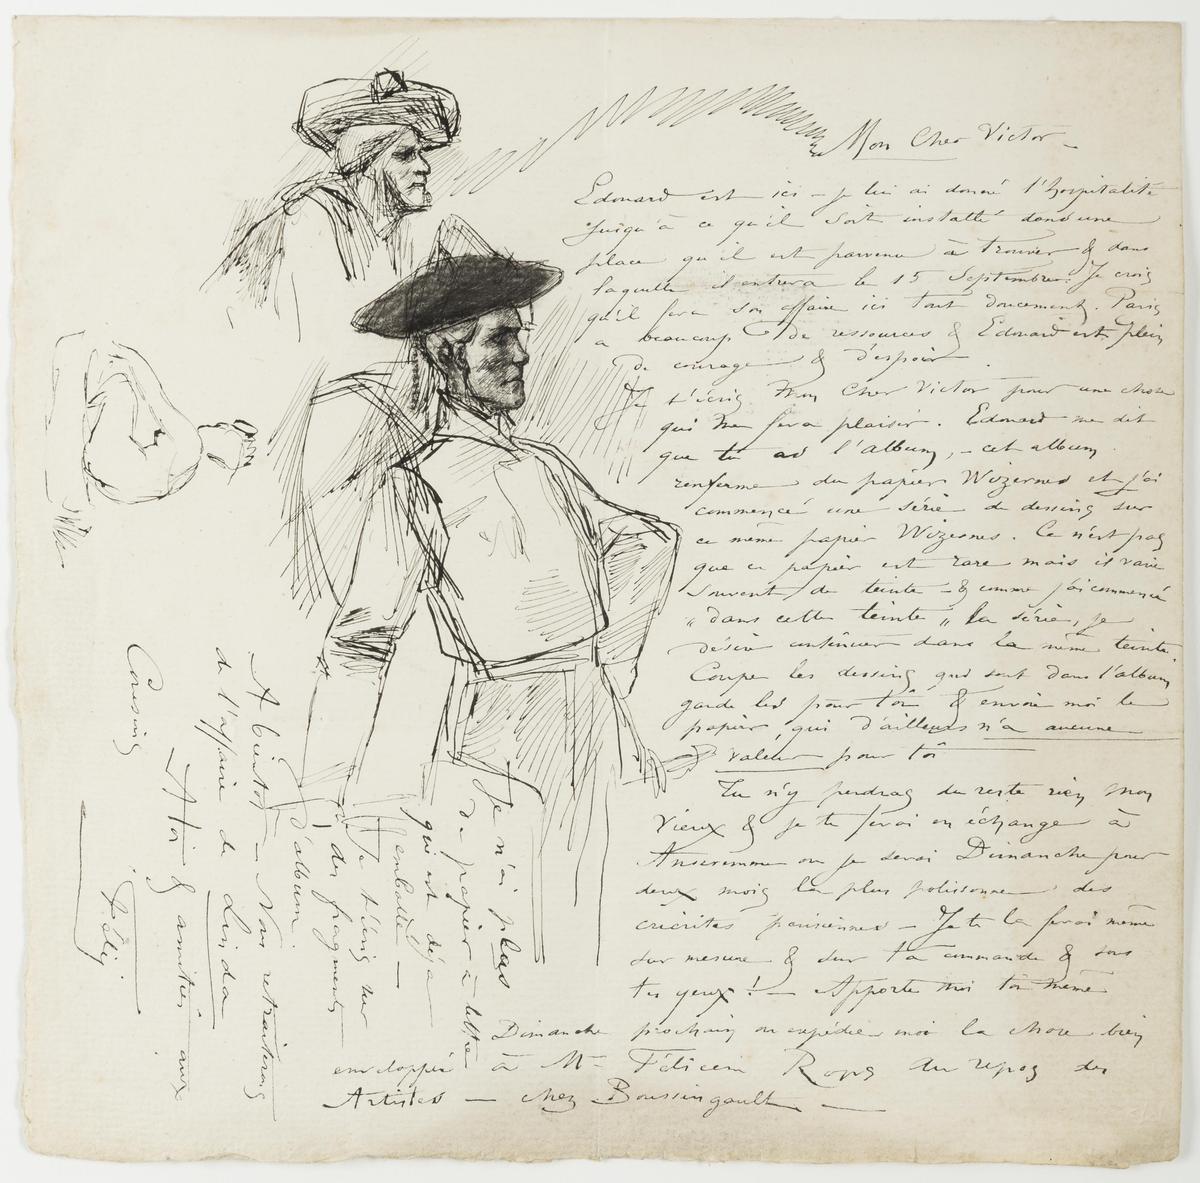 Mon Cher Victor –
Edouard est ici – je lui ai donné l'hospitalité
jusqu'à ce qu'il soit installé dans une
place qu'il est parvenu à trouver & dans
laquelle il entrera le 15 Septembre. Je crois
qu'il fera son affaire ici tout doucement. Paris
a beaucoup de ressources & Edouard est plein
de courage & d'espoir
Je t'écris Mon Cher Victor pour une chose
qui me fera plaisir. Edouard me dit
que tu as l'album, – cet album
renferme du papier Wizernes et j'ai
commencé une série de dessins sur
ce même papier Wizernes. Ce n'est pas
que ce papier est rare mais il varie
souvent de teinte – & comme j'ai commencé
"dans cette teinte" la série, je
désire continuer dans la même teinte.
Coupe les dessins qui sont dans l'album
garde les pour toi & envoie moi le
papier, qui d'ailleurs n'a aucune
valeur pour toi
Tu n'y perdras du reste rien mon
vieux & je te ferai en échange à
Anseremme où je serai Dimanche pour
deux mois la plus polissonne des
parisiennes – Je te la ferai même
sur mesure & sur ta commande & sous
tes yeux ! – Apporte moi toi même
Dimanche prochain ou expédie moi la chose bien
enveloppée à Mr Félicien Rops au repos des
Artistes – chez Boussingault –
Je n'ai plus
de papier à lettre
qui est déjà
emballé –
Je t'écris sur
des fragments
d'album.
A bientôt – Nous retraiterons
de l'affaire de Linda
– à toi & amitiés aux
Cousins
Fély